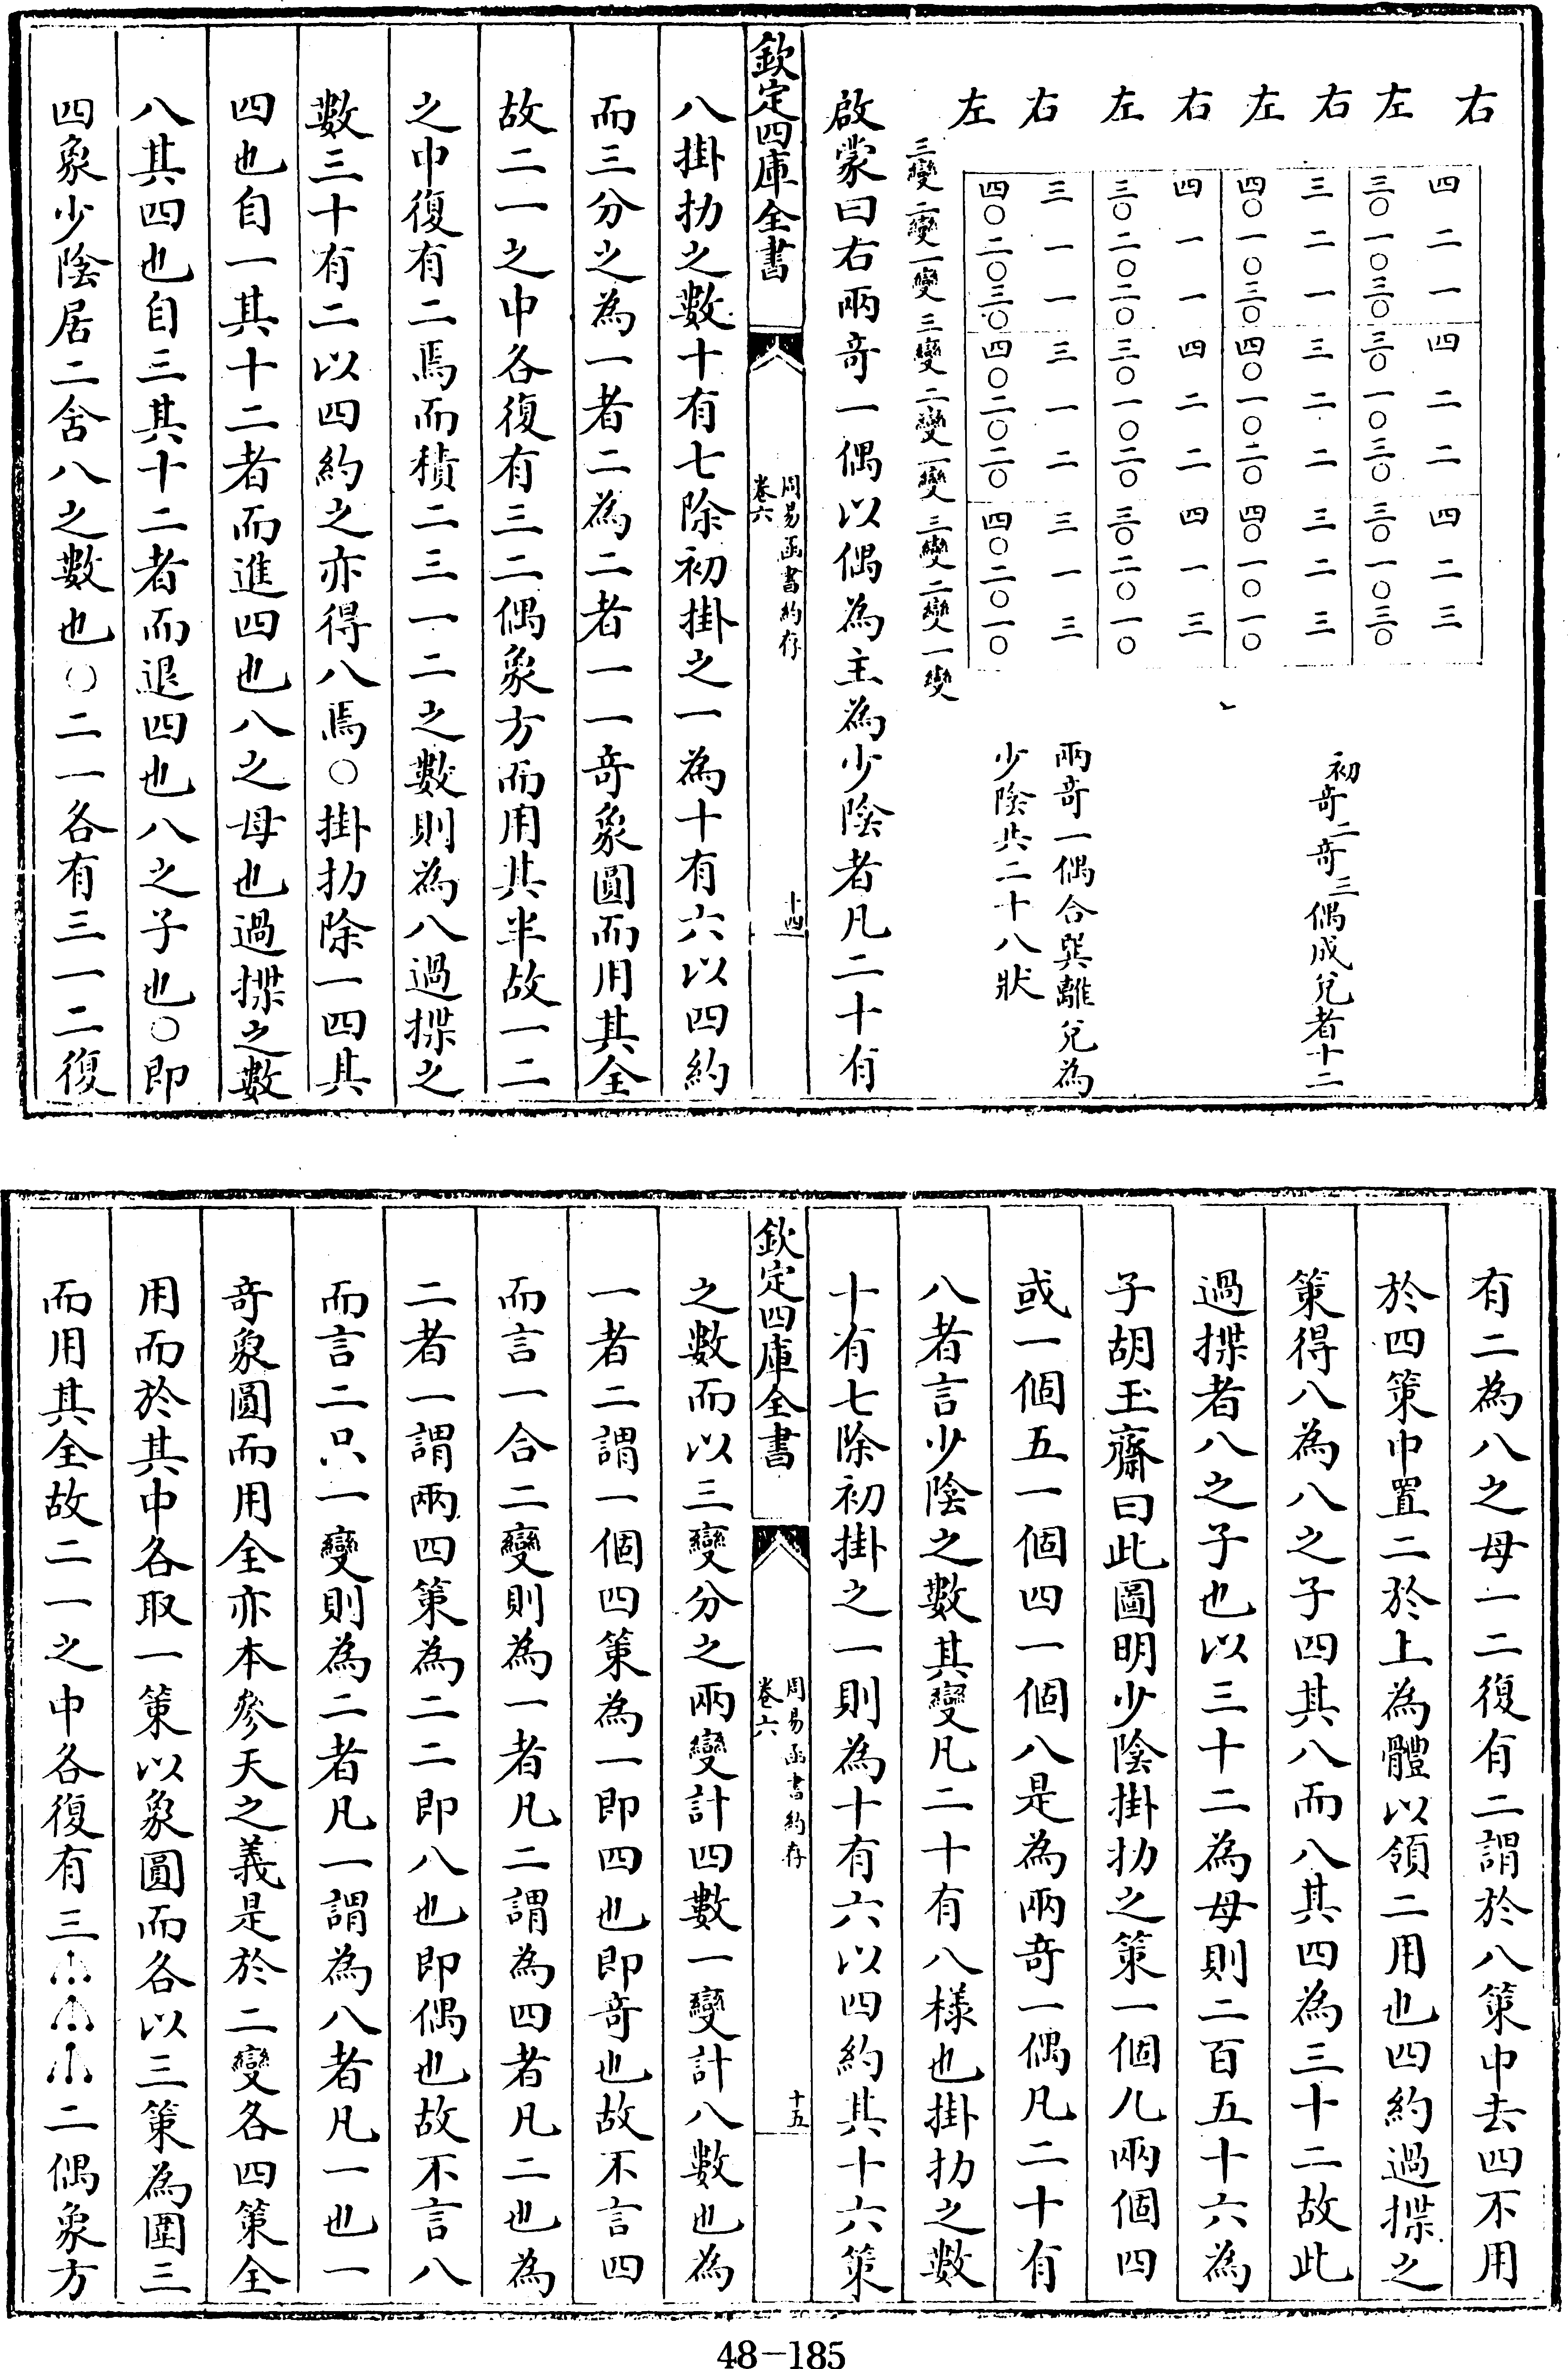 右　左　右　左　右　左　右　左
四　二　一　四　二　二　四　二　三
三○一○三○三○一○三○三○一○三○
三　二　一　三　二　二　三　二　三
四○一○三○四○一○二○四○一○一○
四　一　一　四　二　二　四　一　三
三○二○二○三○一○二○三○二○一○
三　一　一　三　一　二　三　一　三
四○二○三○四○二○二○四○二○一○
三變二變一變三變二變一變三變二變一變
初奇二奇三偶成兌者十二
兩奇一偶合巽離兌為
少陰共二十八狀
啟蒙曰右兩奇一偶以偶為主為少陰者凡二十有
欽定四庫全書
周易函書約存
卷六
十四
八掛扐之數十有七除初掛之一為十有六以四約
而三分之為一者二為二者一一奇象圓而用其全
故二一之中各復有三二偶象方而用其半故一二
之中復有二焉而積二三一二之數則為八過揲之
數三十有二以四約之亦得八焉○掛扐除一四其
四也自一其十二者而進四也八之母也過揲之數
八其四也自三其十二者而退四也八之子也○即
四象少陰居二含八之數也○二一各有三一二復
有二為八之母一二復有二謂於八策中去四不用
於四策中置二於上為體以領二用也四約過揲之
策得八為八之子四其八而八其四為三十二故此
過揲者八之子也以三十二為母則二百五十六為
子胡玉齋曰此圖明少陰掛扐之策一個九兩個四
或一個五一個四一個八是為兩奇一偶凡二十有
八者言少陰之數其變凡二十有八樣也掛扐之數
十有七除初掛之一則為十有六以四約其十六策
欽定四庫全書
周易函書約存
卷六
十五
之數而以三變分之兩變計四數一變計八數也為
一者二謂一個四策為一即四也即奇也故不言四
而言一合二變則為一者凡二謂為四者凡二也為
二者一謂兩四策為二二即八也即偶也故不言八
而言二只一變則為二者凡一謂為八者凡一也一
奇象圓而用全亦本參天之義是於二變各四策全
用而於其中各取一策以象圓而各以三策為圍三
而用其全故二一之中各復有三二偶象方
48-185